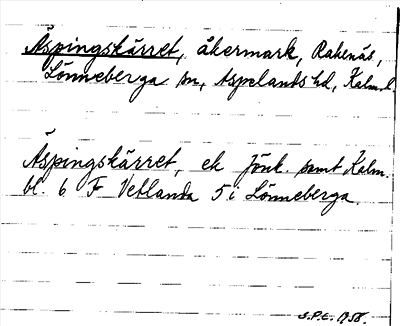 Äspingskärret, åkermark, Rakenäs,
Lönneberga sn, Aspelands hd, Kalm. l.
Äspingskärret, ek Jönk. samt Kalm.
bl. 6 F Vetlanda 5 i Lönneberga.
S.P.E. 1958.